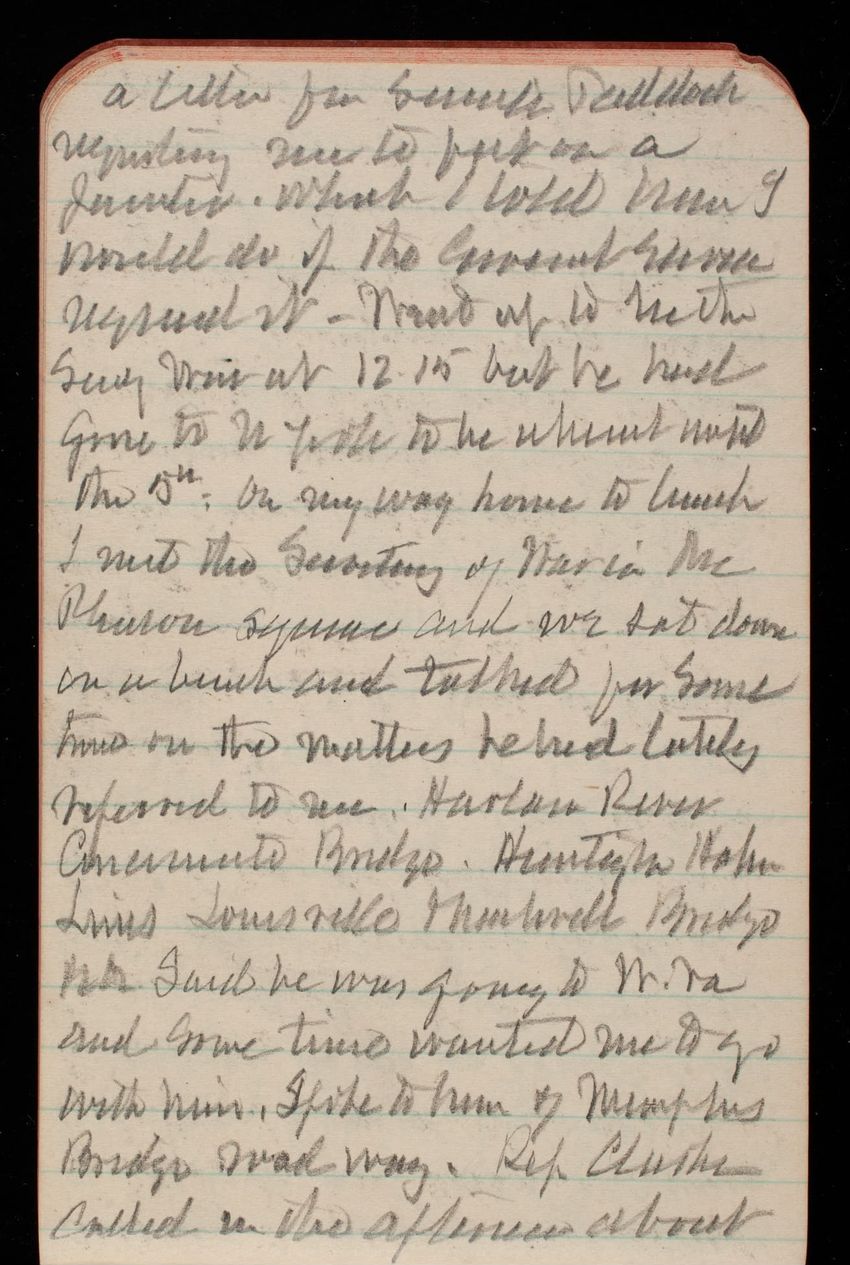 a letter from Senator Paddock
requesting me to put on a
. Which I told him I
would do if the
required it - Went up to see the
Secy War at 12.15 but he had
gone to N York to be absent until
the 15th. On my way home to lunch
I met the Secretary of War in Mc
Pherson square and we sat down
on a bench and talked for some
time on the matters he had lately
referred to me. Harlem River
Cincinnati Bridge.
Lines Louisville Bridge
He said he was going to W. Va
and some time wanted me to go
with him. I spoke to him of Memphis
Bridge road way. Rep Clarke
called in the afternoon about